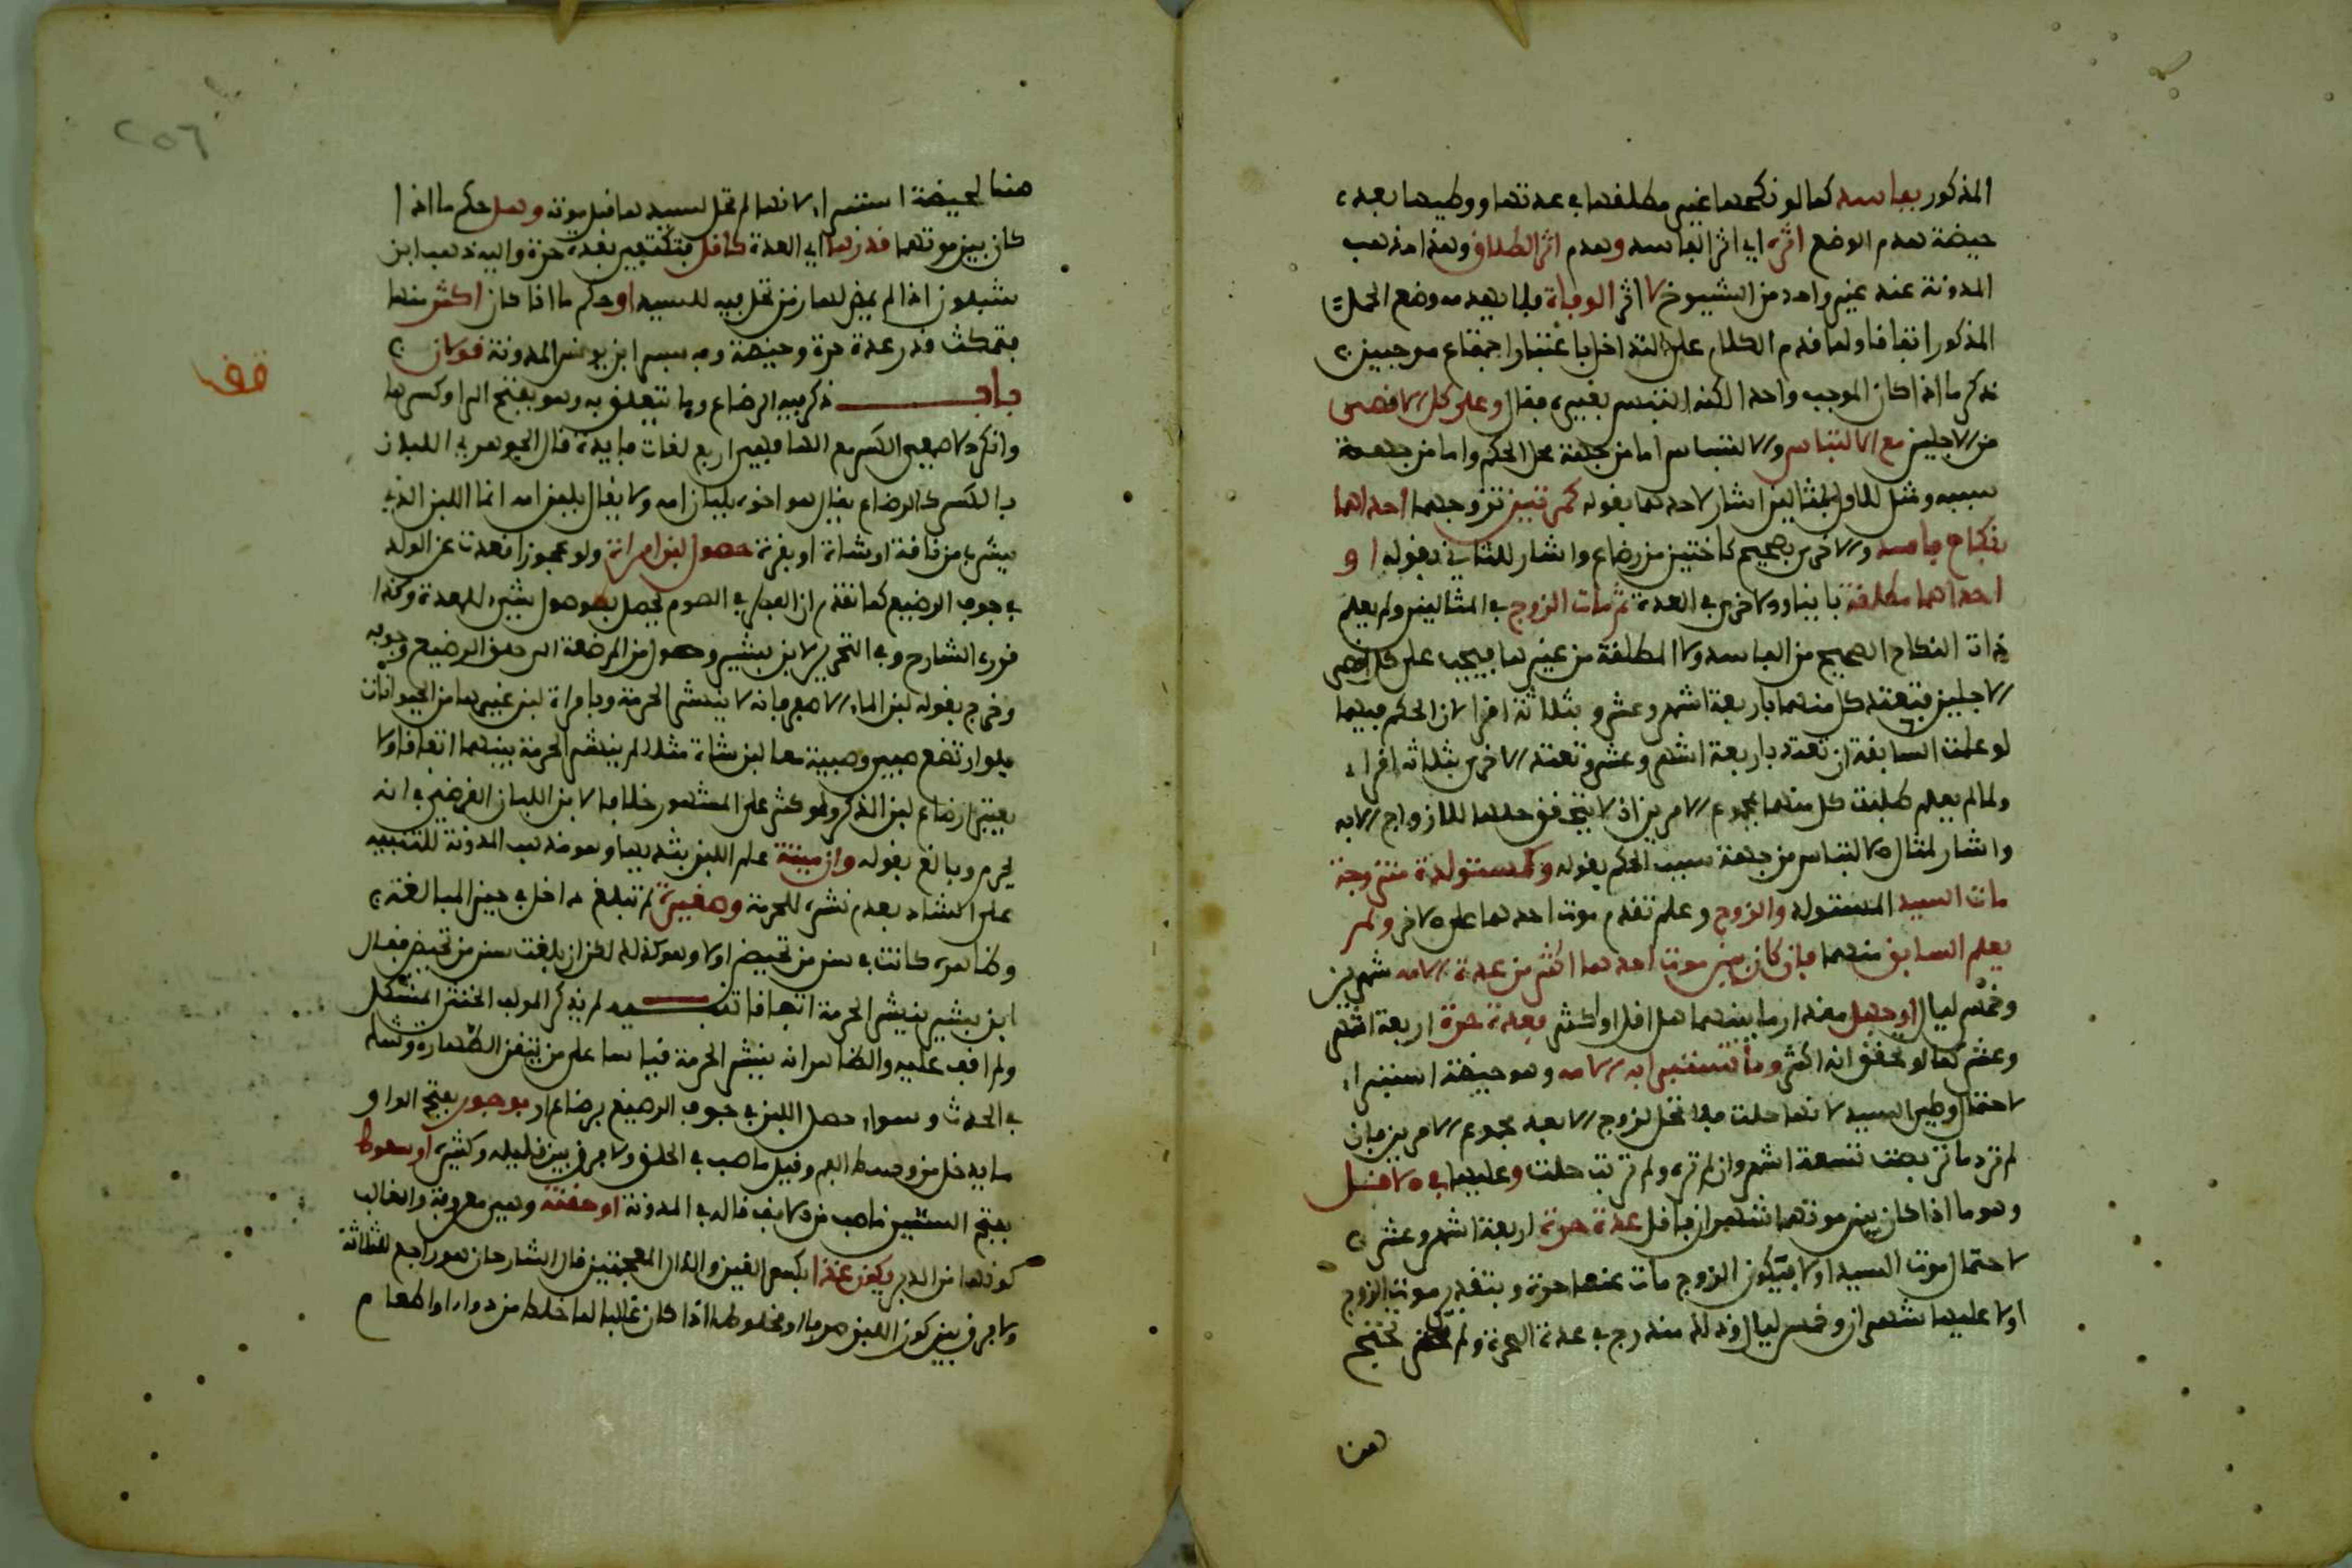 المذكور بفاسد كما لو نكحها غير مطلقها في عدتها ووطيها بعد
حيضة هدم الوضع اثره اي اثر الفاسد وهدم اثر الطلاق وهذا مذهب
المدونة عند غير واحد من الشيوخ لا اثر الوفاة فلا يهدمه وضع الحمل
المذكور اتفاقا ولما قدم الكلام على التداخل باعتبار اجتماع موجبين
ذكر ما اذا كان الموجب واحدا لكنه التبس بغيره فقال وعلى كل الاقصى
من الاجلين مع الالتباس والالتباس اما من جهة محل الحكم واما من جهة
سببه ومثل للاول بمثالين اشار لاحدهما بقوله كمرتين تزوجهما احداهما
بنكاح فاسد والاخرى بصحيح كاختين من رضاع واشار للثاني بقوله او
احداهما مطلقة باينا والاخرى في العدة ثم مات الزوج في المثالين ولم يعلم
ذات النكاح الصحيح من الفاسد ولا المطلقة من غيرها فيجب على كل اقصى
الاجلين فتعتد كل منهما باربعة اشهر وعشر وبثلاثة اقرا لان الحكم فيهما
لو علمت السابقة ان تعتد باربعة اشهر وعشر وتعتد الاخرى بثلاثة اقراء
ولما لم يعلم طلبت كل منهما بمجموع الامرين اذ لا يتحقق حلها للازواج الا به
واشار لمثال الالتباس من جهة سبب الحكم بقوله وكمستولدة متزوجة
مات السيد المستولد والزوج وعلم تقدم موت احدهما على الاخر ولم
يعلم السابق منهما فان كان بين موت احدهما اكثر من عدة الامه شهرين
وخمس ليال او جهل مقدار ما بينهما هل اقل او اكثر فعدة حرة اربعة اشهر
وعشر كما لو تحقق انه اكثر وما تستبرا به الامه وهو حيضة استبراء
لاحتمال وطي السيد لانها حلت فلا تحل لزوج الا بعد مجموع الامرين فان
لم تر دما تربصت تسعة اشهر وان لم تره ولم ترتب حلت وعليها في الاقل
وهو ما اذا كان بين موتهما شهران فاقل عدة حرة اربعة اشهر وعشر
لاحتمال موت السيد اولا فيكون الزوج مات عنها حرة وبتقدير موت الزوج
اولا عليها شهران وخمس ليال وذلك مندرج في عدة الحرة ولم تحتج
هنا
٢٥٦
هنا لحيضة استبراء لانها لم تحل لسيدها قبل موته وهل حكم ما اذا
كان بين موتهما قدرها اي العدة كاقل فتكتفي بعدة حرة واليه ذهب ابن
شبلون اذ لم يمض لها زمن تحل فيه للسيد او حكم ما اذا كان اكثر منها
فتمكث قدر عدة حرة وحيضة وبه فسر ابن يونس المدونة قولان
قف
باب ذكر فيه الرضاع وما يتعلق به وهو بفتح الرا وكسرها
وانكر الاصمعي الكسر مع الها فهي اربع لغات فايدة قال الجوهري اللبان
بالكسر كالرضاع يقال هو اخوه بلبان امه ولا يقال بلبن امه انما اللبن الذي
يشرب من ناقة او شاة او بقرة حصول لبن امراة ولو عجوزا قعدت عن الولد
في جوف الرضيع كما تقدم ان الفطر في الصوم يحصل بوصول شيء للمعدة وكذا
قوره الشارح وفي التحرير لابن بشير وصول من المرضعة الى حلق الرضيع وجوفه
وخرج بقوله لبن الماء الاصفر فانه لا ينشر الحرمة وبامراة لبن غيرها من الحيوانات
فلو ارتضع صبي وصبية معا لبن شاة مثلا لم ينشر الحرمة بينهما اتفاقا ولا
يعتبر ارضاع لبن الذكر ولو كثر على المشهور خلافا لابن اللبان الفرضي في انه
يحرم وبالغ بقوله وان ميتة علم اللبن بثديها وهو مذهب المدونة للتنبيه
على الشاذ بعدم نشره للحرمة وصغيرة لم تبلغ داخل في حيز المبالغة
وظاهره كانت في سن من تحيض او لا وهو كذلك لكن ان بلغت سن من تحيض فقال
ابن بشير ينشر الحرمة اتفاقا تنبيه لم يذكر المولف الخنثى المشكل
ولم اقف عليه والظاهر انه ينشر الحرمة قياسا على من تيقن الطهارة وشك
في الحدث وسواء حصل اللبن في جوف الرضيع برضاع او بوجور بفتح الواو
ما يدخل من وسط الفم وقيل ما صب في الحلق ولا فرق بين قليله وكثيره او سعوط
بفتح السين ما صب من الانف قاله في المدونة او حقنة وهي معروفة والغالب
كونها من الدبر يكون غذا بكسر الغين والذال المعجمتين قال الشارحان هو راجع للثلاثة
ولا فرق بين كون اللبن صرفا او مخلوطا اذا كان غالبا لما خلط من دواء او طعام